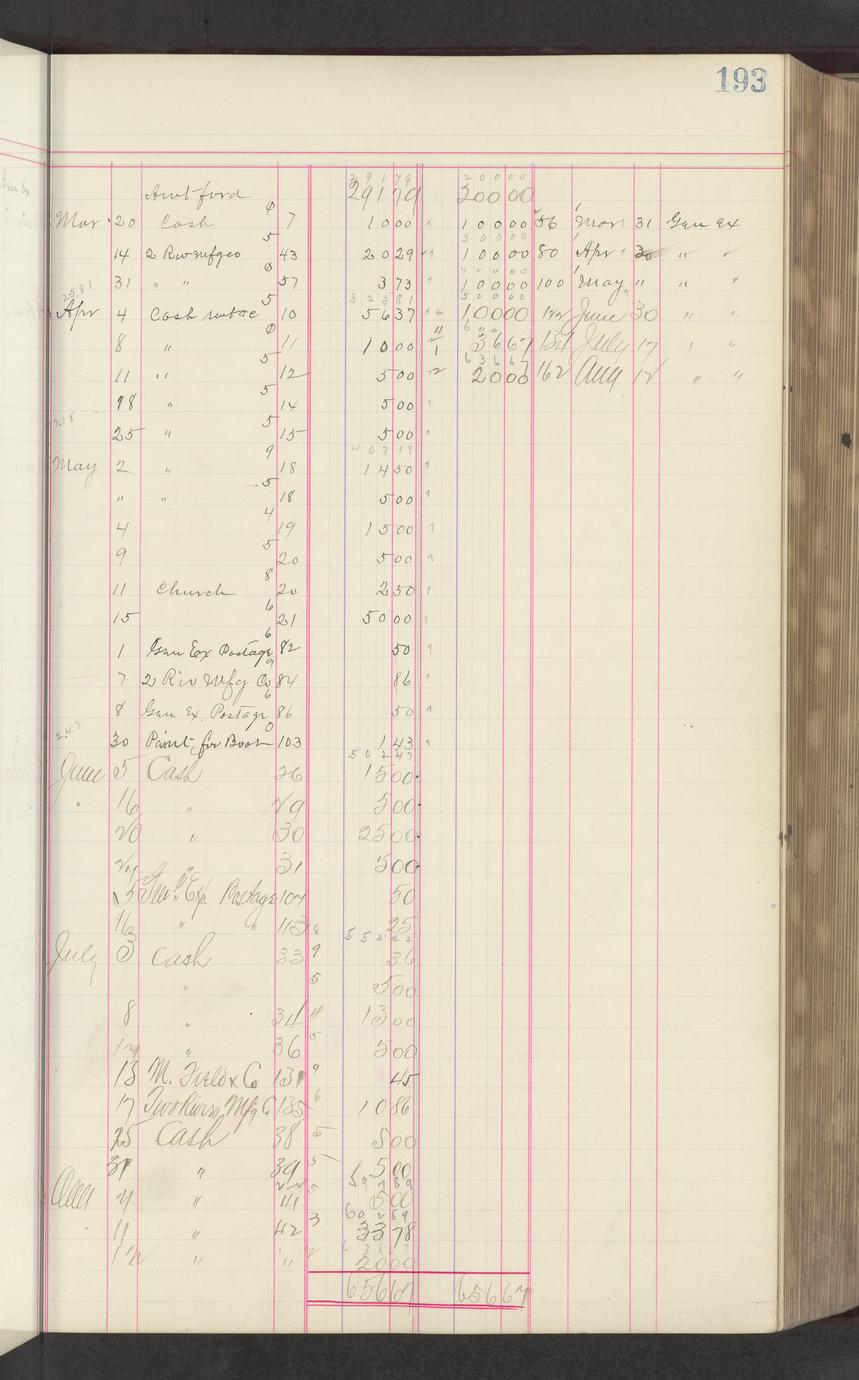 193
29179 20000
Amt ford 29179 20000
Mar 20 Cash 7 1000 10000 56 Mar 31 Gen Ex
30000
14 2 Riv Mfg Co 43 2029 10000 80 Apr 30 " "
31 " " 57 373 10000 100 May " " "
2581 32581 50000
Apr 4 Cash 10 5637 10000 122 June 30 " "
8 " 11 1000 3667 154 July 17 " "
63667
11 " 12 500 2000 162 Aug 12 " "
18 " 14 500
25 " 15 500
40718
May 2 " 18 1450
" " 18 500
4 19 1500
9 20 500
11 Church 20 250
15 21 5000
1 Gen Ex Postage 82 50
7 2 Riv Mfg Co 84 86
8 Gen Ex. Postage 86 50
2.47
30 Paint for Boat 103 143
50247
June 5 Cash 26 1500
16 " 29 500
20 " 30 2500
27 " 31 500
5 Gen Exp. Postage 107 50
16 " " 113 25
55322
July 3 Cash 33 9 36
" 5 500
8 " 34 4 1300
12 " 36 5 500
13 M. Field & Co 131 9 45
17 Two Rivers Mfg C 135 6 1086
25 Cash 38 5 500
31 " 39 5 500
59789
Aug 4 " 41 5 500
60289
11 " 42 3 3378
63667
12 " " 2000
65667 65667